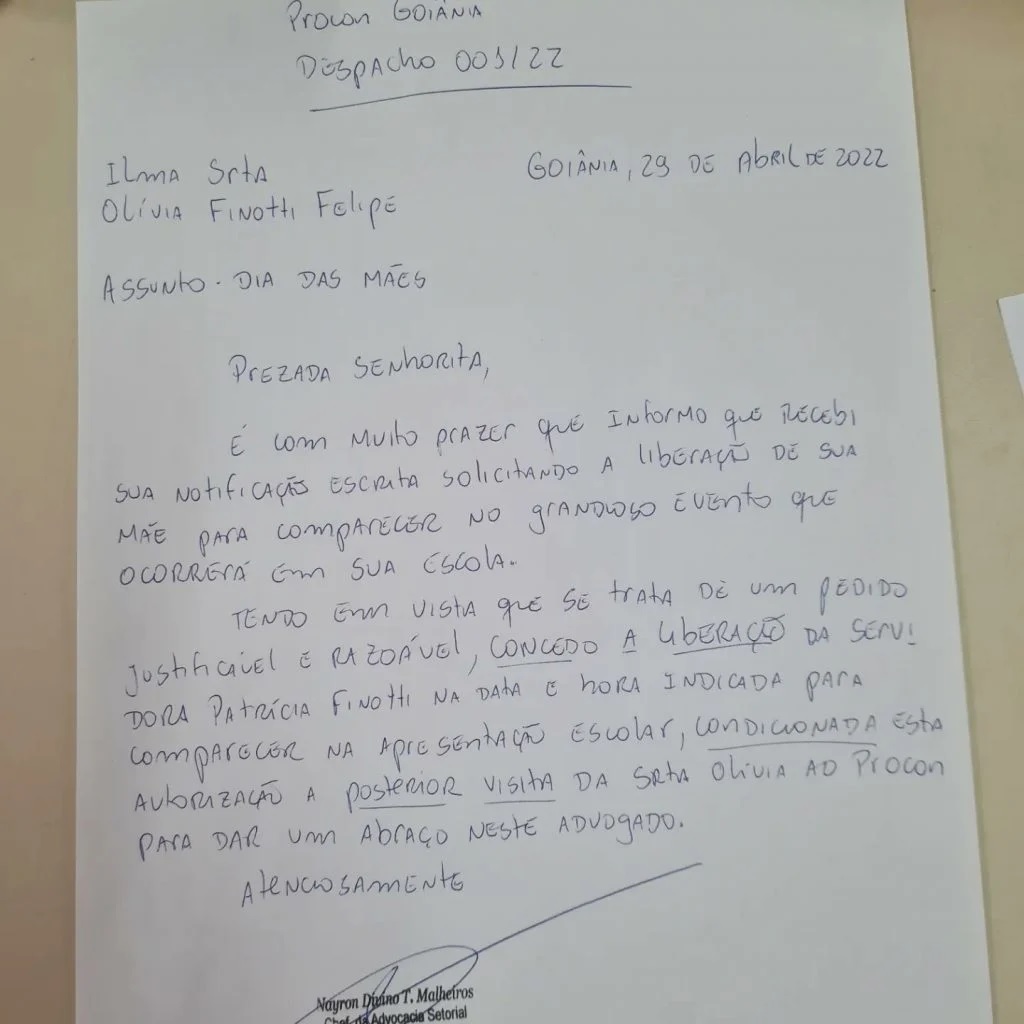 Procon Goiânia
Despacho 001/22
Ilma Srta
Goiânia, 29 de Abril de 2022
Olívia Finotti Felipe
Assunto - Dia das Mães
Prezada Senhorita,
É com muito prazer que informo que recebi
sua notificação escrita solicitando a liberação de sua
mãe para comparecer no grandioso evento que
ocorrerá em sua escola.
Tendo em vista que se trata de um pedido
justificável e razoável, concedo a liberação da servi
dora Patrícia Finotti na data e hora indicada para
comparecer na apresentação escolar, condicionada esta
autorização a posterior visita da Srta Olivia ao Procon
para dar um abraço neste advogado.
Atenciosamente
Nayron T. Malheiros
Advocacia Setorial